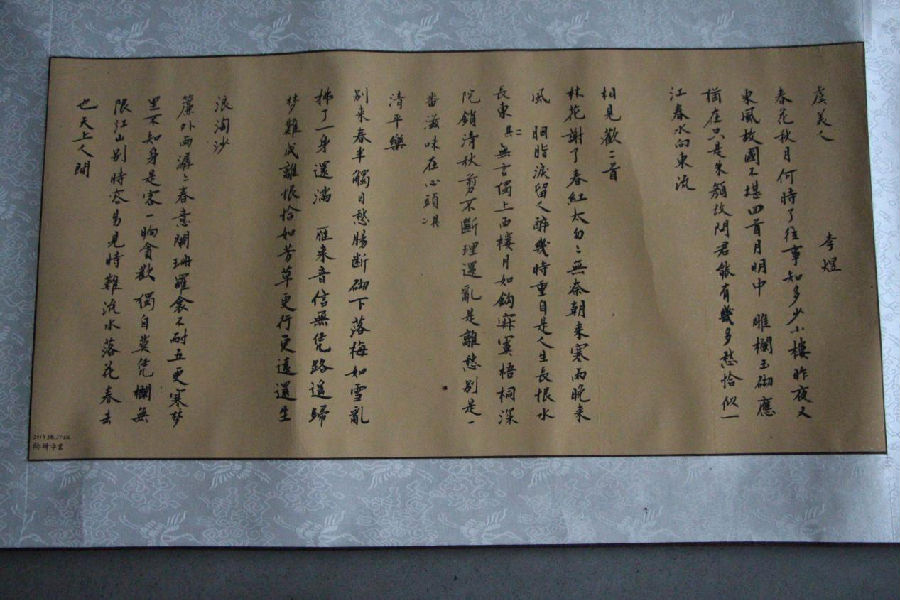 虞美人
李煜
春花秋月何時了往事知多少小樓昨夜又
東風故國不堪回首月明中 雕欄玉砌應
猶在只是朱顏改問君能有幾多愁恰似一
江春水向東流
相見歡二首
林花謝了春紅太匆々無奈朝来寒雨晚来
風 胭脂淚留人醉幾時重自是人生長恨水
長東 其二無言獨上西樓月如鈎寂寞梧桐深
院鎖清秋剪不斷理還亂是離愁别是一
番滋味在心頭
清平樂
别来春半觸目愁腸斷砌下落梅如雪亂
拂了一身還滿 雁来音信無凭路遥歸
夢難成離恨恰如芳草更行更遠還生
浪淘沙
簾外雨潺々春意闌珊羅衾不耐五更寒夢
里不知身是客一晌貪歡 獨自莫凭欄無
限江山别時容易見時難流水落花春去
也天上人間